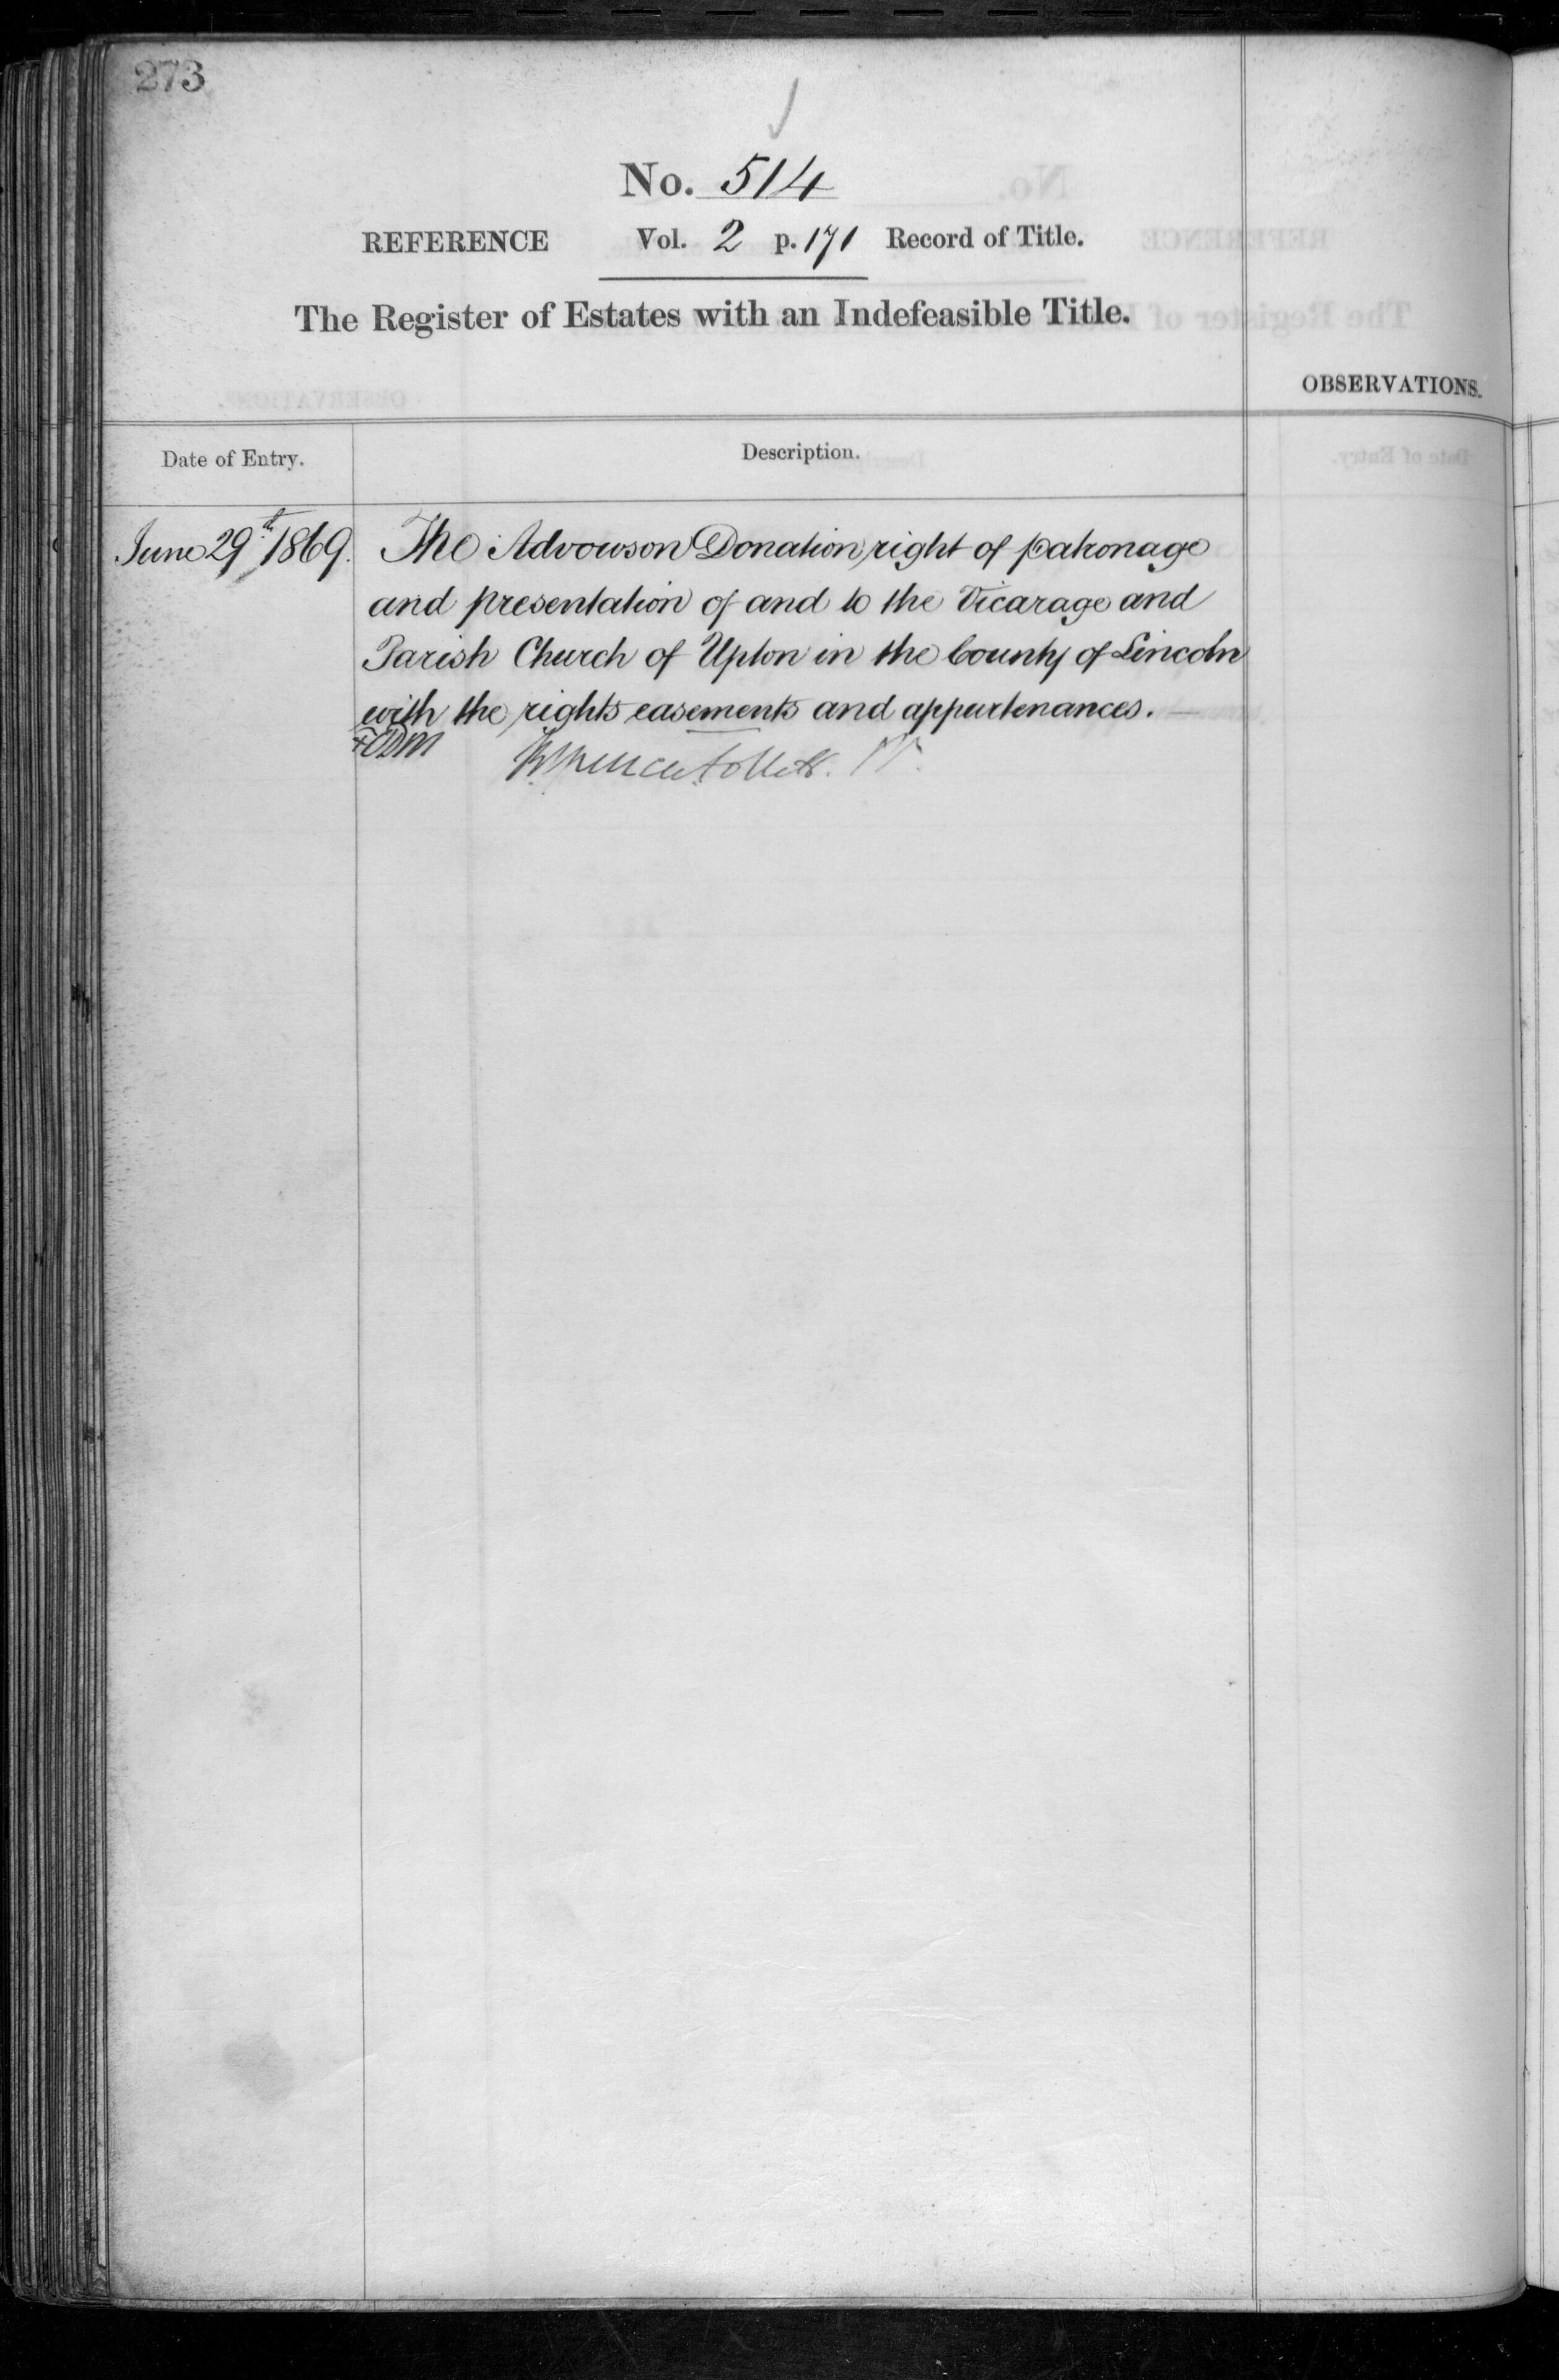 273
No. 514
REFERENCE Vol. 2 p. 171 Record of Title.
The Register of Estates with an Indefeasible Title.
OBSERVATIONS.
Date of Entry. Description.
June 29th 1869. The Advowson Donation right of patronage
and presentation of and to the Vicarage and
Parish Church of Upton in the County of Lincoln
with the rights easements and appurtenances.